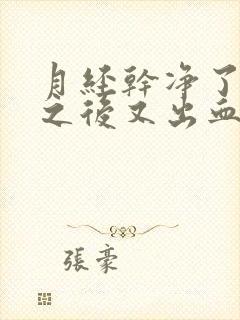 月经幹净了
之後又出血
張豪